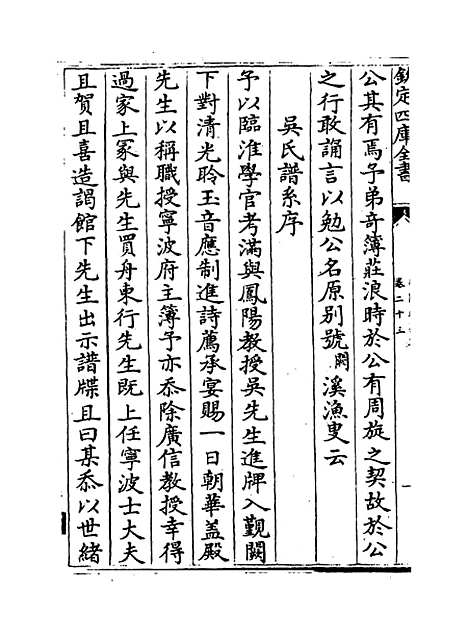 欽定四庫全書
卷二十三
公其有焉予弟奇簿莊浪時於公有周旋之契故於公
之行敢誦言以勉公名原别號闕溪漁叟云
吳氏譜系序
予以臨淮學官考滿與鳳陽教授吳先生進牌入覲闕
下對清光聆玉音應制進詩薦承宴賜一日朝華蓋殿
先生以稱職授寧波府主簿予亦忝除廣信教授幸得
過家上冢與先生買舟東行先生既上任寧波士大夫
且賀且喜造謁館下先生出示譜牒且曰某忝以世緒